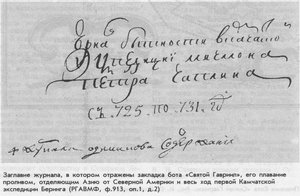 бытности
мичмана
Петра Чаплина
съ 725 по 731. го
Заглавие журнала, в котором отражены закладка бота «Святой Гавриил», его плавание
проливом, отделяющим Азию от Северной Америки и весь ход первой Камчатской
экспедиции Беринга (РГАВМФ, ф.913, оп.1, д.2)